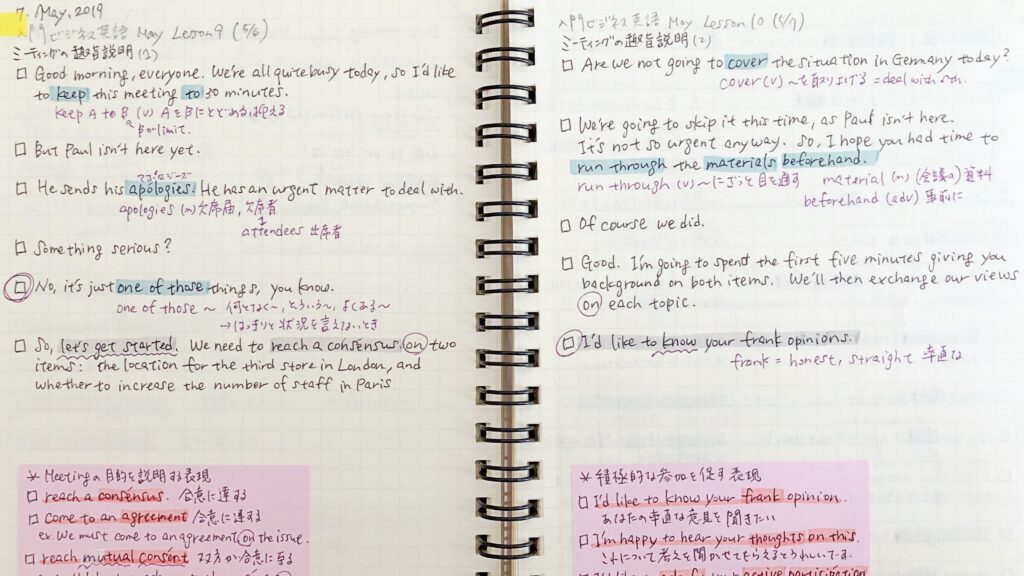 7. May. 2019
入門ビジネス英語 May Lesson 9 (5/6)
ミーティングの趣旨説明 (1)
□ Good morning, everyone. We're all quite busy today, so I'd like
to keep this meeting to 30 minutes.
keep A to B (v) AをBにとどめる, 抑える
B or limit.
□ But Paul isn't here yet.
アポロジーズ
□ He sends his apologies. He has an urgent matter to deal with.
apologies (n) 欠席届, 欠席者
attendees 出席者
□ Something serious?
□ No, it's just one of those things, you know.
one of those ~ 何となく~, こういう~, よくある~
→はっきりと状況を言えないとき
□ So, let's get started. We need to reach a consensus on two
items: the location for the third store in London, and
whether to increase the number of staff in Paris.
* Meetingの目的を説明する表現
□ reach a consensus. 合意に達する
□ come to an agreement 合意に達する
ex. We must come to an agreement on the issue.
□ reach mutual consent 双方が合意に至る
入門ビジネス英語 May Lesson 10 (5/7)
ミーティングの趣旨説明 (2)
□ Are we not going to cover the situation in Germany today?
cover (v) ~を取り上げる = deal with sth.
□ We're going to skip it this time, as Paul isn't here.
It's not so urgent anyway. So, I hope you had time to
run through the materials beforehand.
run through (v) ~にざっと目を通す material (n) (会議の)資料
beforehand (adv) 事前に
□ Of course we did.
□ Good. I'm going to spend the first five minutes giving you
background on both items. We'll then exchange our views
on each topic.
□ I'd like to know your frank opinions.
frank = honest, straight 率直な
* 積極的な参加を促す表現
□ I'd like to know your frank opinion.
あなたの率直な意見を聞きたい
□ I'm happy to hear your thoughts on this.
これについて考えを聞かせてもらえるとうれしいです.
active participation